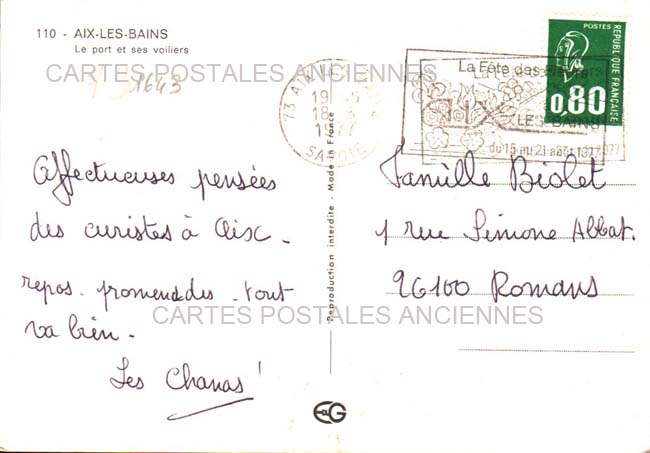 110 - AIX-LES-BAINS
Le port et ses voiliers
1643
CARTES POSTALES ANCIENNES
73 AIX
19
18
1977
SAVOIE
La Fête des
LES-BAINS
du 15 au 21 août 1977
POSTES
0,80
REPUBLIQUE FRANÇAISE
Affectueuses pensées
des curistes à Aix -
repos - promenades - tout
va bien -
Les Chanas !
Reproduction interdite - Made in France
EG
Famille Biolet
1 rue Simone Abbat.
26100 Romans
CARTES POSTALES ANCIENNES